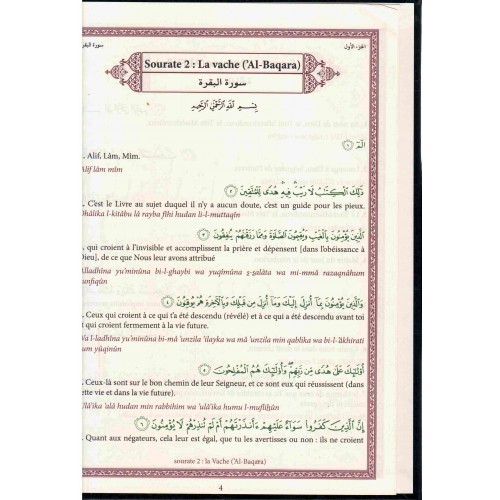 سورة البقرة
الجزء الأول
Sourate 2 : La vache ('Al-Baqara)
سورة البقرة
بِسْمِ اللَّهِ الرَّحْمَٰنِ الرَّحِيمِ
الٓمٓ ١
. Alif, Lâm, Mîm.
Alif lâm mîm
ذَٰلِكَ ٱلْكِتَٰبُ لَا رَيْبَ فِيهِ هُدًى لِّلْمُتَّقِينَ ٢
. C'est le Livre au sujet duquel il n'y a aucun doute, c'est un guide pour les pieux.
Dhâlika l-kitâbu lâ rayba fîhi hudan li-l-muttaqîn
ٱلَّذِينَ يُؤْمِنُونَ بِٱلْغَيْبِ وَيُقِيمُونَ ٱلصَّلَوٰةَ وَمِمَّا رَزَقْنَٰهُمْ يُنفِقُونَ ٣
. qui croient à l'invisible et accomplissent la prière et dépensent [dans l'obéissance à
Dieu], de ce que Nous leur avons attribué
Alladhîna yu'minûna bi-l-ghaybi wa yuqîmûna ṣ-ṣalâta wa mi-mmâ razaqnâhum
unfiqûn
وَٱلَّذِينَ يُؤْمِنُونَ بِمَآ أُنزِلَ إِلَيْكَ وَمَآ أُنزِلَ مِن قَبْلِكَ وَبِٱلْءَاخِرَةِ هُمْ يُوقِنُونَ ٤
. Ceux qui croient à ce qui t'a été descendu (révélé) et à ce qui a été descendu avant toi
t qui croient fermement à la vie future.
Wa l-ladhîna yu'minûna bi-mâ 'unzila 'ilayka wa mâ 'unzila min qablika wa bi-l-'âkhirati
um yûqinûn
أُو۟لَٰٓئِكَ عَلَىٰ هُدًى مِّن رَّبِّهِمْ وَأُو۟لَٰٓئِكَ هُمُ ٱلْمُفْلِحُونَ ٥
. Ceux-là sont sur le bon chemin de leur Seigneur, et ce sont eux qui réussissent (dans
ette vie et dans la vie future).
'lâ'ika 'alâ hudan min rabbihim wa 'ulâ'ika humu l-mufliḥûn
إِنَّ ٱلَّذِينَ كَفَرُوا۟ سَوَآءٌ عَلَيْهِمْ ءَأَنذَرْتَهُمْ أَمْ لَمْ تُنذِرْهُمْ لَا يُؤْمِنُونَ ٦
. Quant aux négateurs, cela leur est égal, que tu les avertisses ou non : ils ne croient
sourate 2 : la Vache ('Al-Baqara)
4